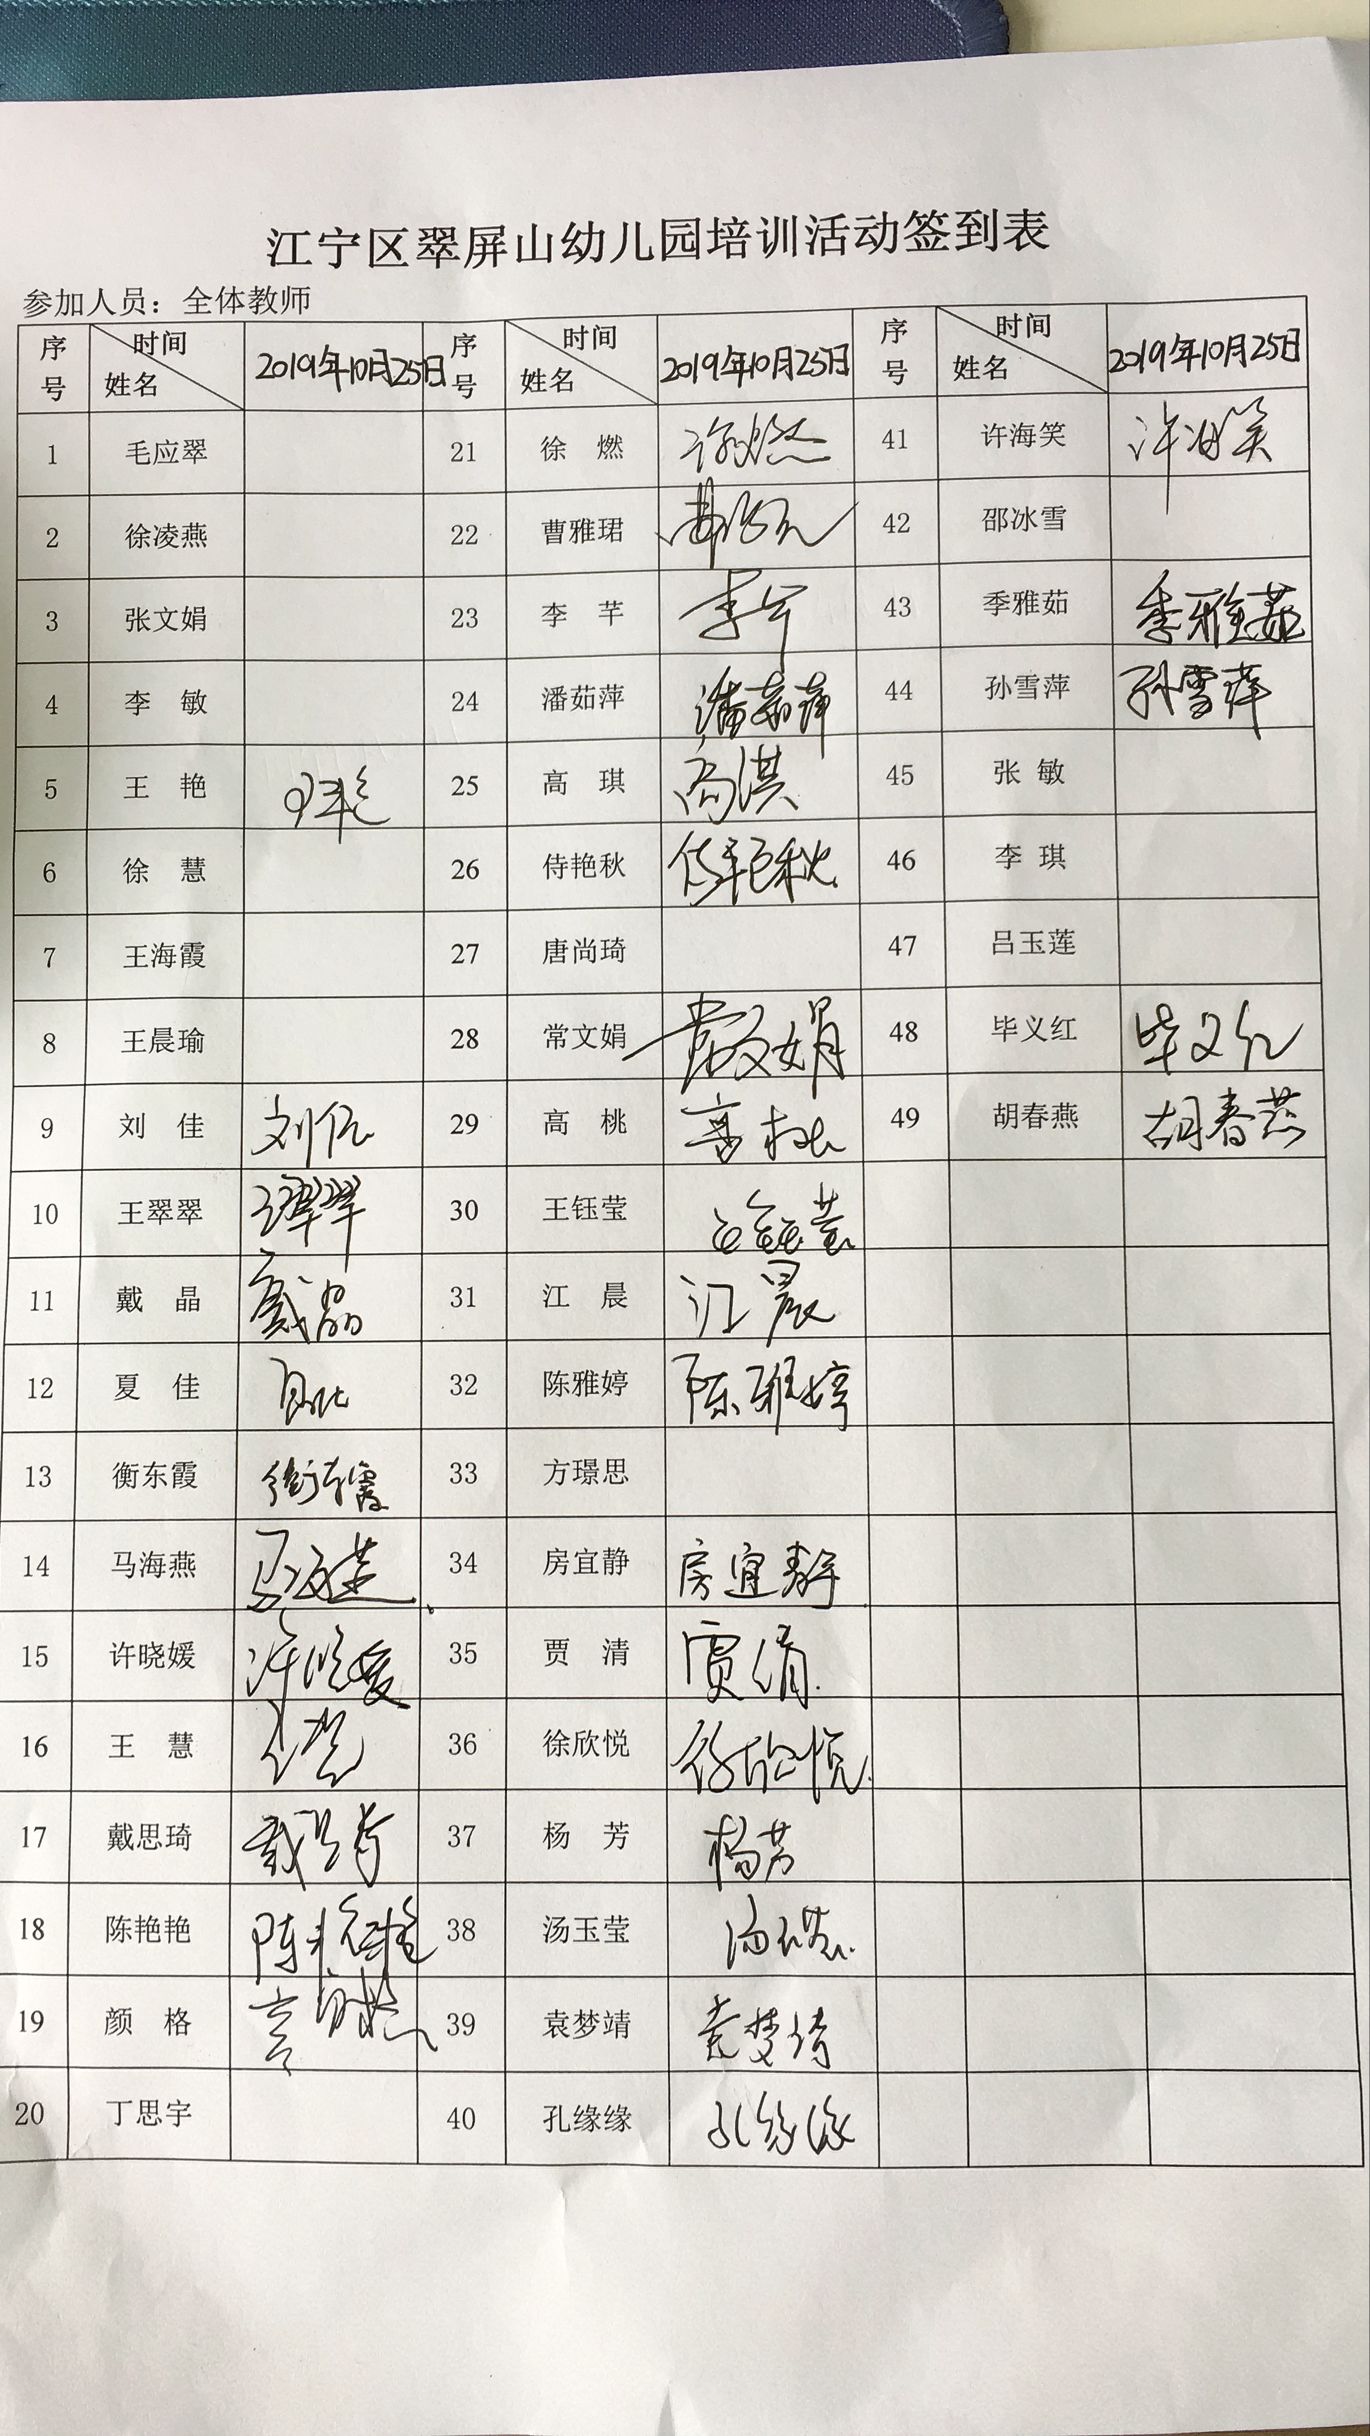 江宁区翠屏山幼儿园培训活动签到表
参加人员：全体教师
序号 时间 姓名 2019年10月25日 序号 时间 姓名 2019年10月25日 序号 时间 姓名 2019年10月25日
1 毛应翠 21 徐燃 徐燃 41 许海笑 许海笑
2 徐凌燕 22 曹雅珺 42 邵冰雪
3 张文娟 23 李芊 李芊 43 季雅茹 季雅茹
4 李敏 24 潘茹萍 潘茹萍 44 孙雪萍 孙雪萍
5 王艳 王艳 25 高琪 高淇 45 张敏
6 徐慧 26 侍艳秋 侍艳秋 46 李琪
7 王海霞 27 唐尚琦 47 吕玉莲
8 王晨瑜 28 常文娟 常文娟 48 毕义红 毕义红
9 刘佳 刘佳 29 高桃 高桃 49 胡春燕 胡春燕
10 王翠翠 王翠翠 30 王钰莹 王钰莹
11 戴晶 戴晶 31 江晨 江晨
12 夏佳 夏佳 32 陈雅婷 陈雅婷
13 衡东霞 衡东霞 33 方璟思
14 马海燕 马海燕 34 房宜静 房宜静
15 许晓媛 许晓媛 35 贾清 贾清
16 王慧 王慧 36 徐欣悦 徐欣悦
17 戴思琦 戴思琦 37 杨芳 杨芳
18 陈艳艳 陈艳艳 38 汤玉莹 汤玉莹
19 颜格 颜格 39 袁梦靖 袁梦靖
20 丁思宇 40 孔缘缘 孔缘缘